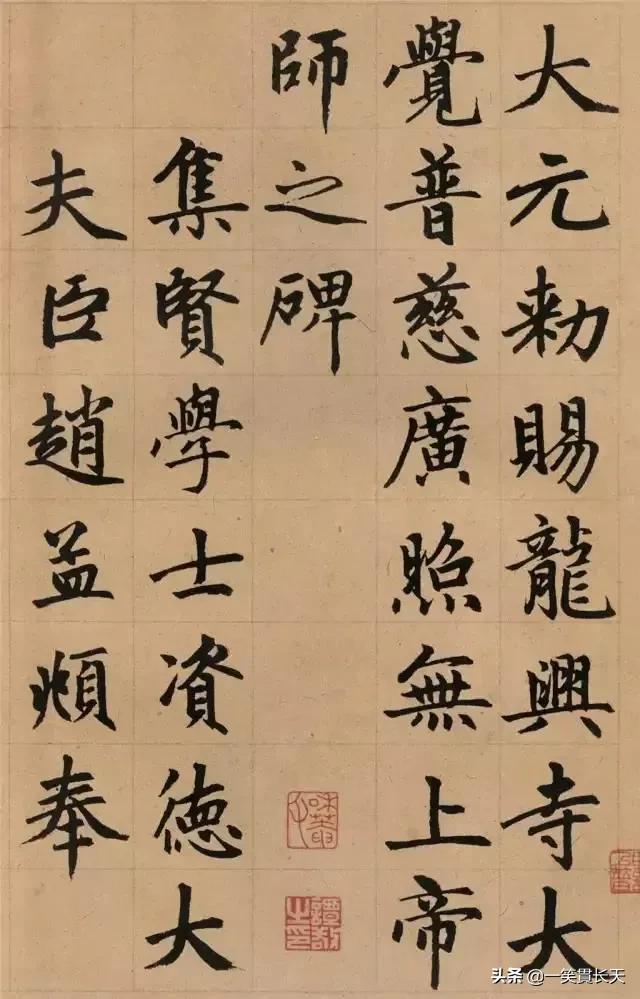 大元勅賜龍興寺大
覺普慈廣照無上帝
師之碑
集賢學士資德大
夫臣趙孟頫奉
頭条 @一笑貫长天